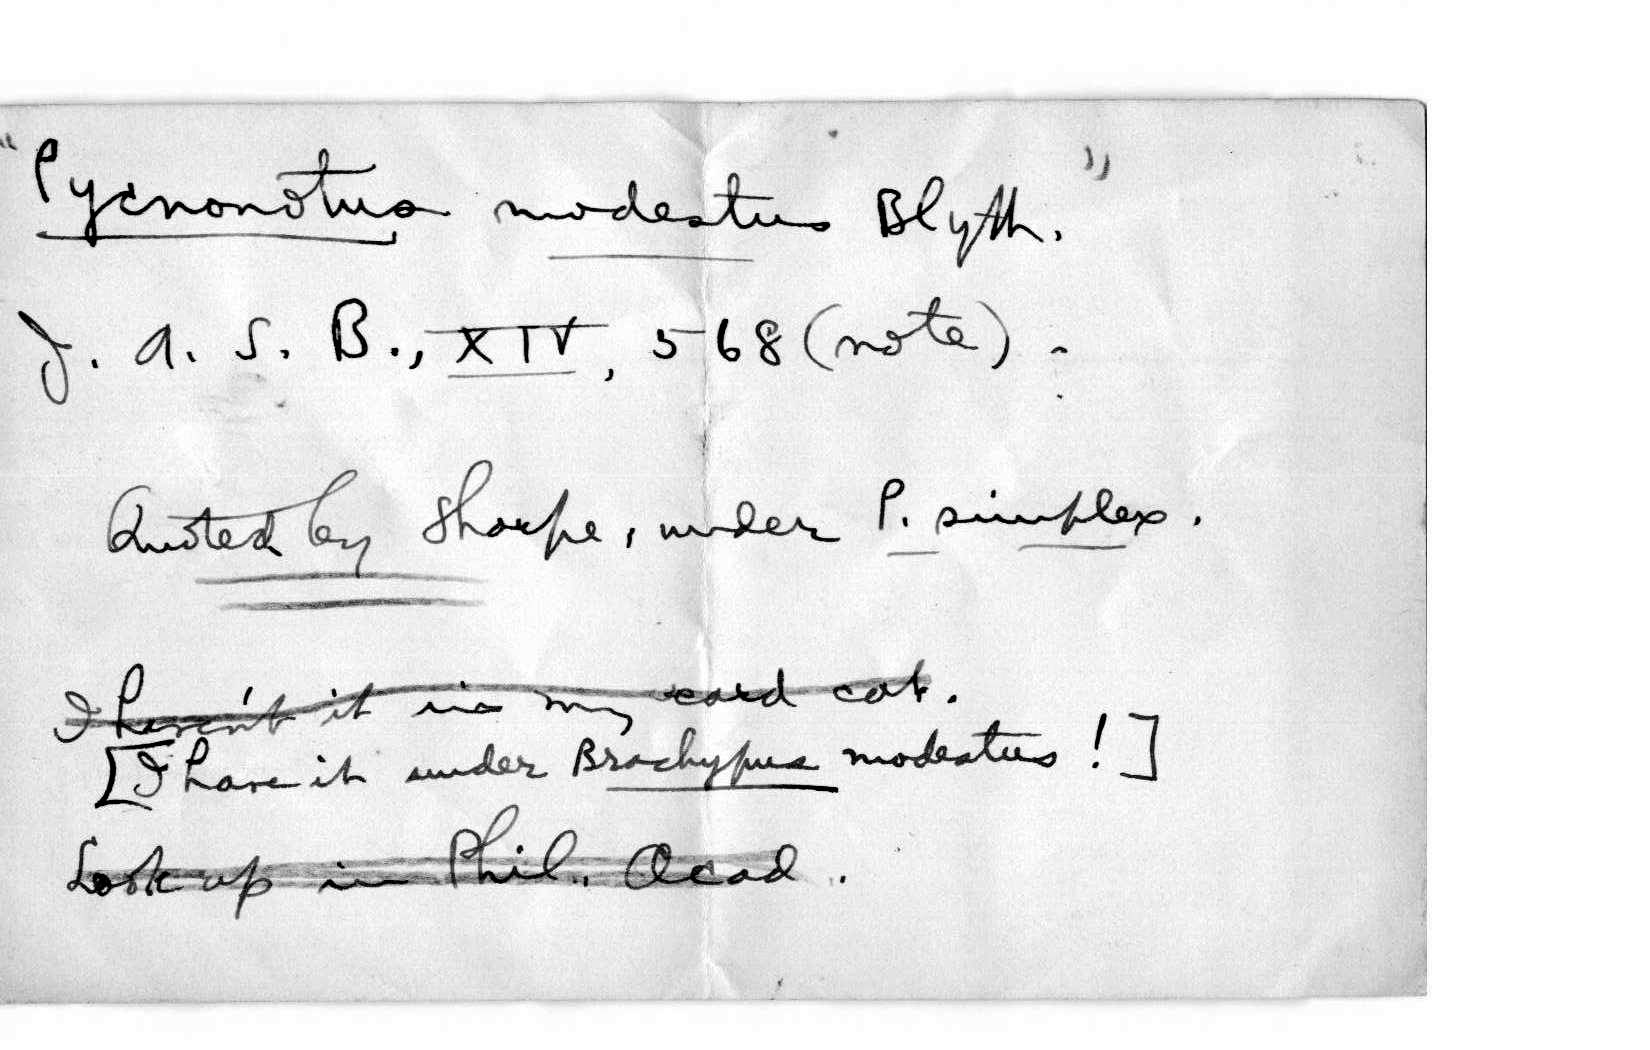 "Pycnonotus modestus Blyth."
J. A. S. B., XIV, 568 (note).
Quoted by Sharpe, under P. simplex.
I haven't it in my card cat.
[I have it under Brachypus modestus!]
Look up in Phil. Acad.